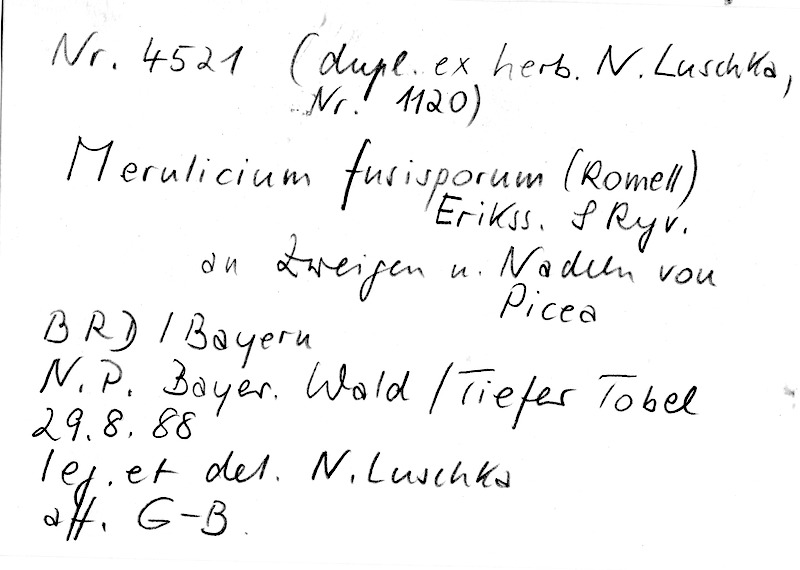 Nr. 4521 (dupl. ex herb. N. Luschka,
Nr. 1120)
Merulicium fusisporum (Romell)
Erikss. & Ryv.
an Zweigen u. Nadeln von
Picea
BRD / Bayern
N.P. Bayer. Wald / Tiefer Tobel
29.8.88
leg. et det. N. Luschka
att. G-B.